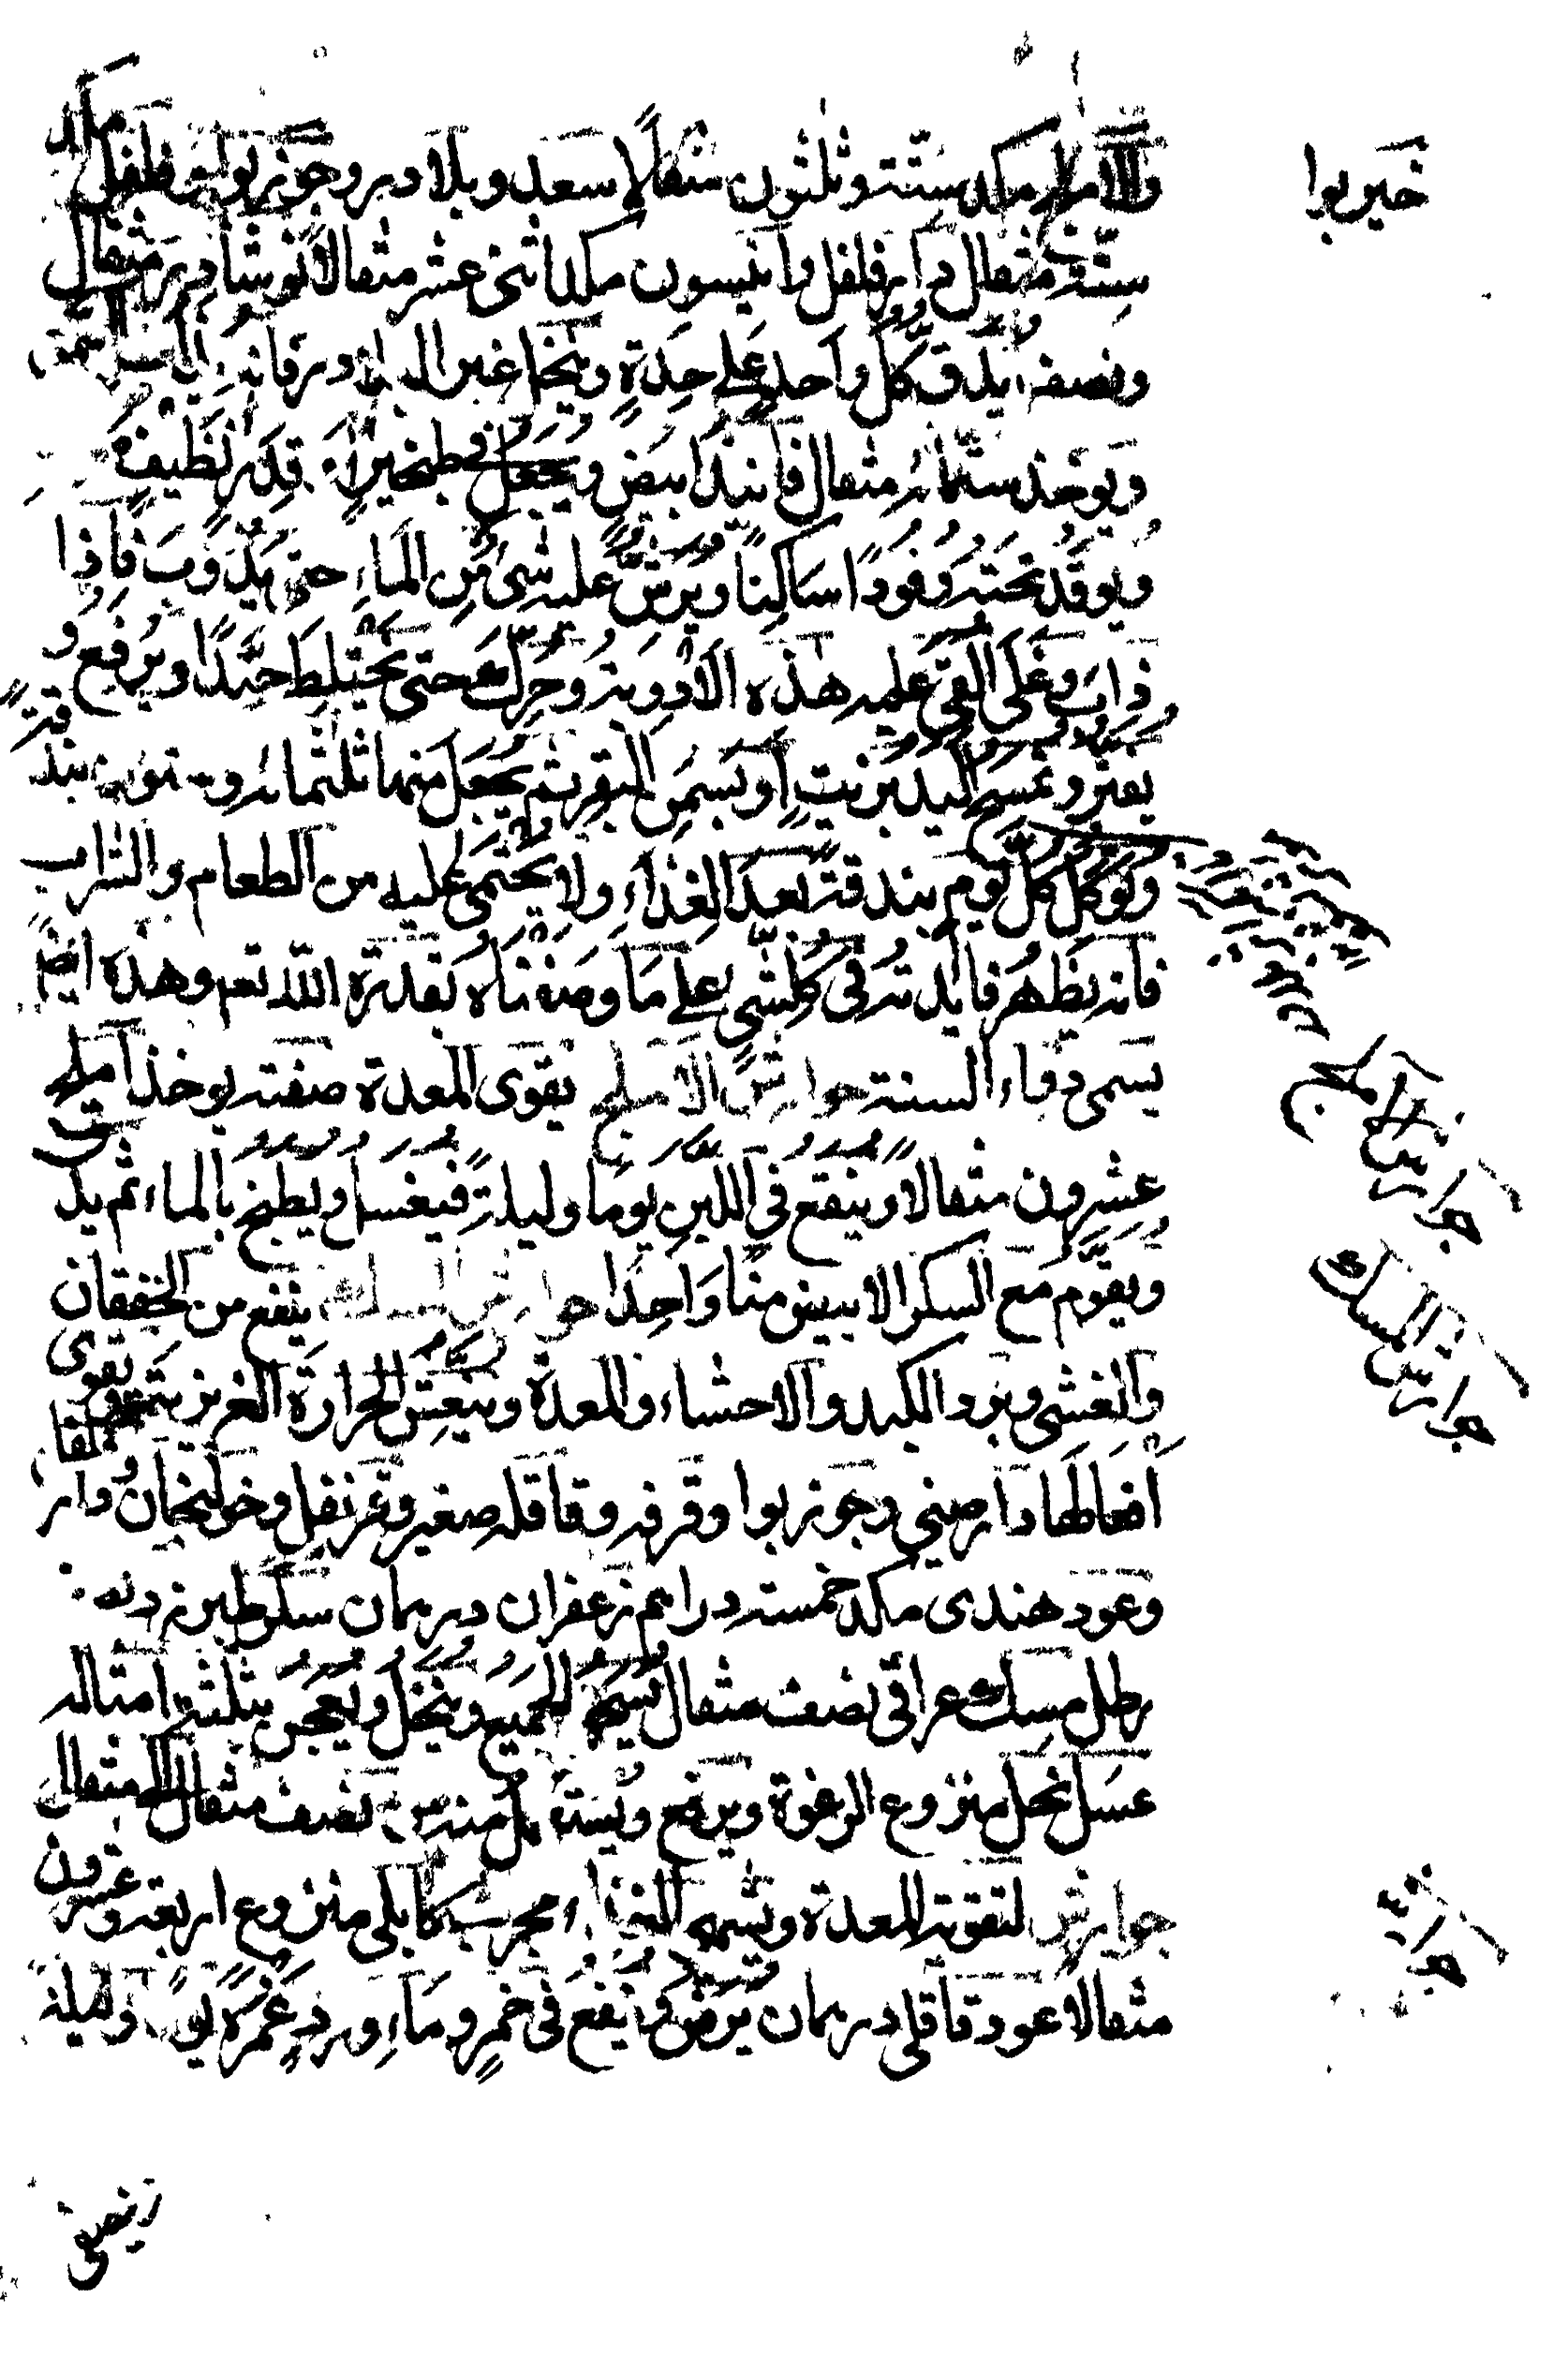 خيربوا
والاملج مكد ستة وثلثون مثقالا سعد وبلادر وجوزبوا وفلفل مكد
ستة مثقال دارفلفل وانيسون مكد اثنى عشر مثقالا نوشادر مثقال
ونصف يدق كل واحد على حدة وينخل غير
ويوخذ ستمائة مثقال فانيذ ابيض ويجعل في طنجير او قدر نظيفة
ويوقد تحته وقودا ساكنا ويرش عليه شئ من الماء حتى يذوب فاذا
ذاب وغلى القى عليه هذه الادوية وحرك حتى يختلط جيدا ويرفع و
يفتر وغمس اليد بزيت او بسمن البقر ثم يجعل منها ثلثمائة وستون بندقة
ويوكل كل يوم بندقة بعد الغذاء ولا يحتمى عليه من الطعام والشراب
فانه يظهر فايدته في كل شئ على ما وصفناه بقدرة الله تعم وهذه ايضا
يسمى دواء السنة جوارش الاملج يقوى المعدة صفته يوخذ املج
عشرون مثقالا وينقع في اللبن يوما وليلة فيغسل ويطبخ بالماء ثم يدق
ويقوم مع السكر الابيض منا واحدا جوارش المسك ينفع من الخفقان
والغشى وبرد الكبد والاحشاء والمعدة وينعش الحرارة الغريزية ويقوى
افعالها دارصيني وجوزبوا وقرفه وقاقله صغير وقرنفل وخولنجان ودار فلفل
وعود هندى مكد خمسة دراهم زعفران درهمان سكر طبرزد
رطل مسك عراقى نصف مثقال يسحق الجميع وينخل ويعجن بثلثة امثاله
عسل نحل منزوع الرغوة ويرفع ويستعمل منه نصف مثقال الى مثقال
جوارش لتقوية المعدة ويشهى الغذاء مجرب كابلى منزوع اربعة وعشرون
مثقالا عود قاقلى درهمان يرض وينقع فى خمر وماء ورد غمره يوما وليلة
جوارش املج
جوارش المسك
جوارش